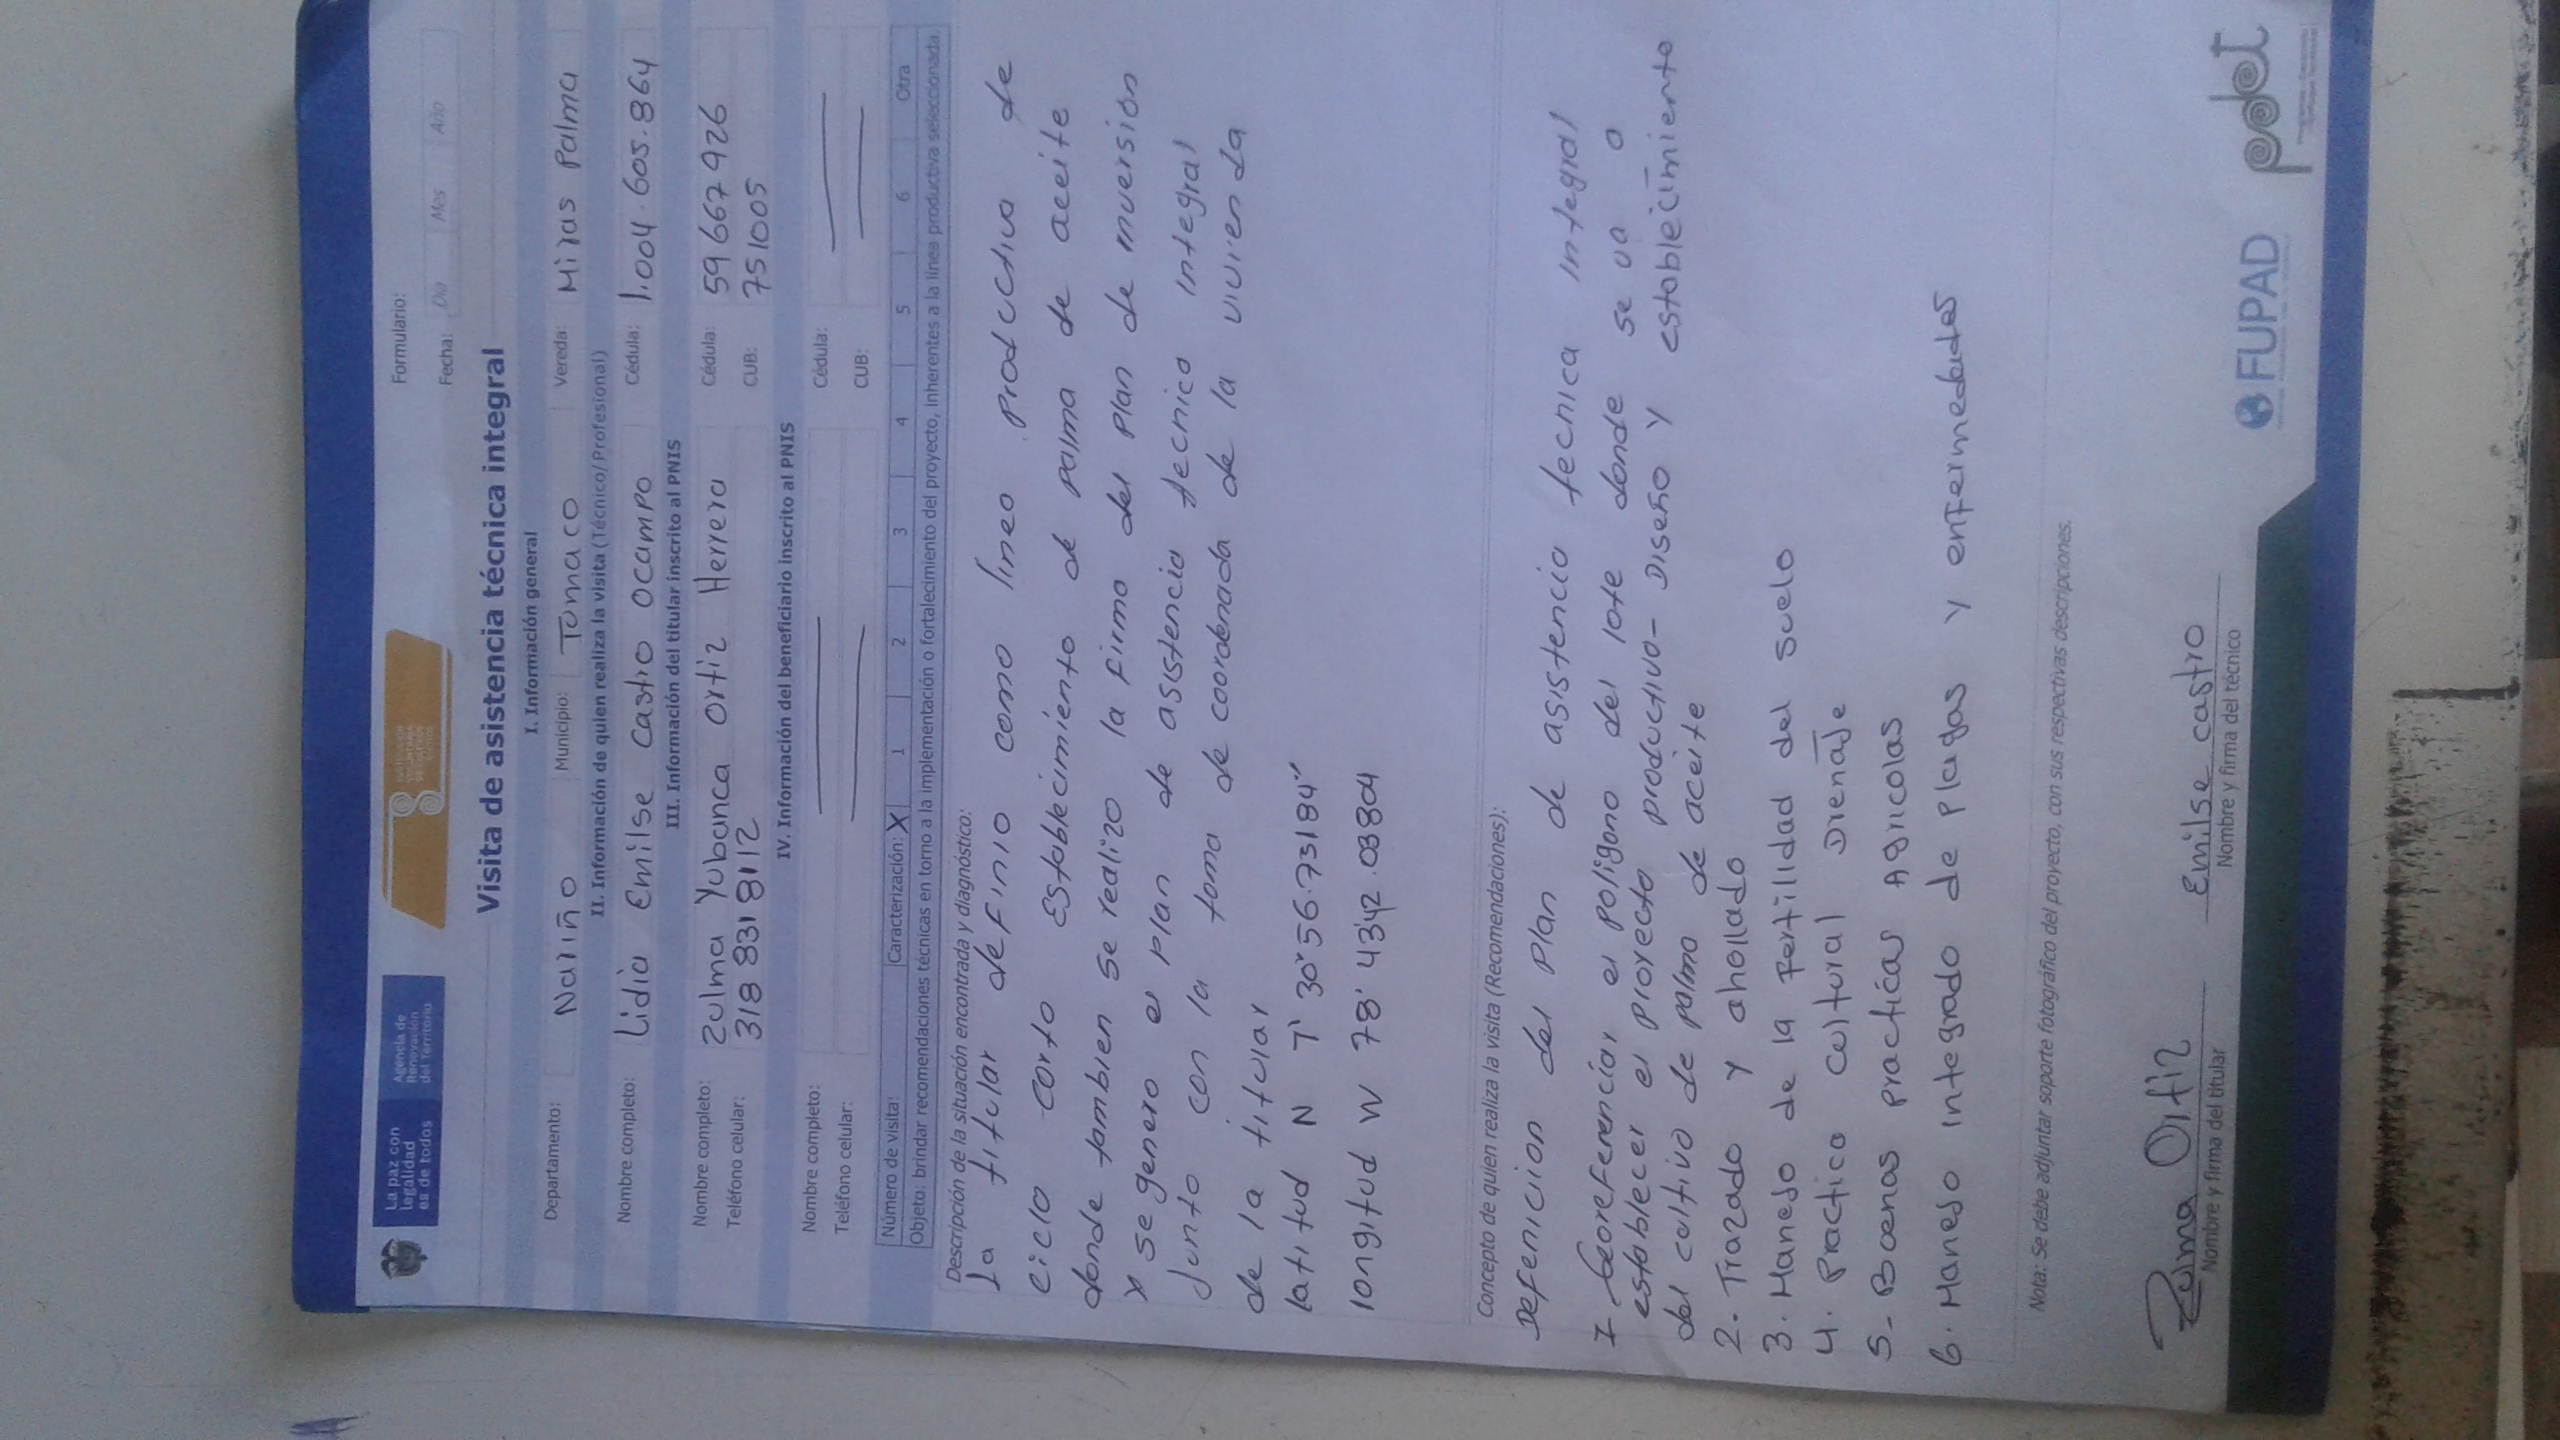 La paz con
legalidad
es de todos
Agencia de
Renovación
del Territorio
Formulario:
Fecha: Día Mes Año
Visita de asistencia técnica integral
I. Información general
Departamento: Nariño Municipio: Tumaco Vereda: Miras Palma
II. Información de quien realiza la visita (Técnico/Profesional)
Nombre completo: Lidia Emilse Castro Ocampo Cédula: 1.004.605.864
III. Información del titular inscrito al PNIS
Nombre completo: Zulma Yubanca Ortiz Herrera Cédula: 59 667 926
Teléfono celular: 318 831 8112 CUB: 751005
IV. Información del beneficiario inscrito al PNIS
Nombre completo: Cédula:
Teléfono celular: CUB:
Número de visita: Caracterización: X 1 2 3 4 5 6 Otra
Objeto: brindar recomendaciones técnicas en torno a la implementación o fortalecimiento del proyecto, inherentes a la línea productiva seleccionada
Descripción de la situación encontrada y diagnóstico:
la titular definio como lineo productiva de
ciclo corto establecimiento de palma de aceite
donde tambien se realizo la firma del plan de inversion
y se genero el plan de asistencia tecnica integral
Junto con la toma de coordenada de la vivienda
de la titular
latitud N 1' 30' 56.73184"
longitud W 78' 43'42.03804
Concepto de quien realiza la visita (Recomendaciones):
Defenicion del plan de asistencia tecnica integral
1- Georeferenciar el poligono del lote donde se va a
establecer el proyecto productivo- Diseño y establecimiento
del cultivo de palma de aceite
2- Trazado y ahollado
3. Manejo de la fertilidad del suelo
4. Practica cultural Drenaje
5- Buenas practicas Agricolas
6. Manejo integrado de plagas y enfermedades
Nota: Se debe adjuntar soporte fotográfico del proyecto, con sus respectivas descripciones.
Zulma Ortiz Emilse castro
Nombre y firma del titular Nombre y firma del técnico
FUPAD pdet